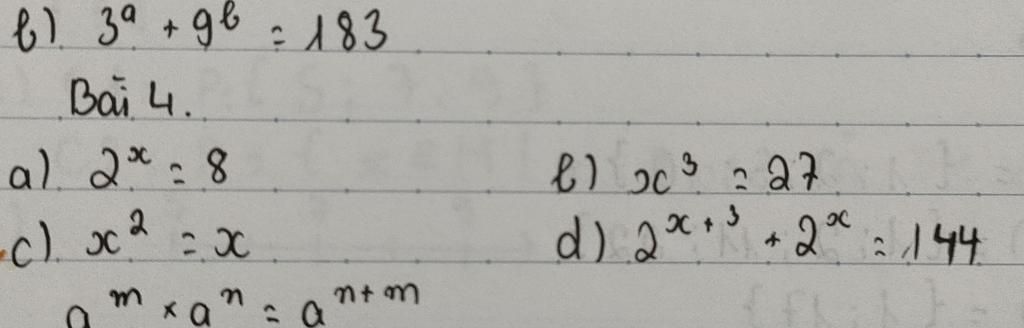 b) 3^a + 9^b = 183
Bài 4.
a) 2^x = 8 b) x^3 = 27
c) x^2 = x d) 2^{x+3} + 2^x = 144
a^m × a^n = a^{n+m}